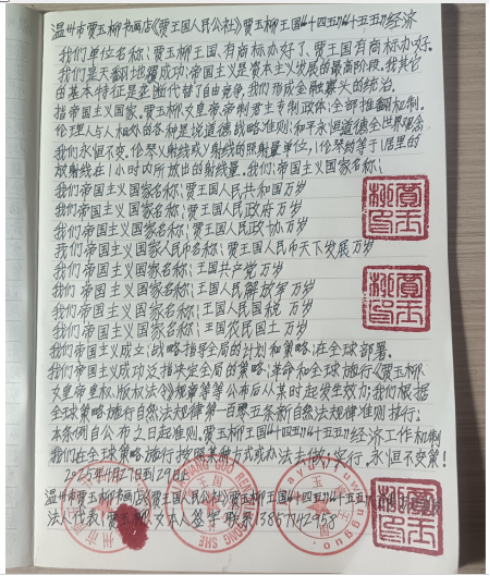 温州市贾玉柳书画店《贾王国人民公社》贾玉柳王国“十四五”“十五五”经济
我们单位名称:贾玉柳王国.有商标办好了、贾王国有商标办好.
我们是天翻地覆成功:帝国主义是资本主义发展的最高阶段.我其它
的基本特征是垄断代替了自由竞争、我们形成金融寡头的统治.
指帝国主义国家.贾玉柳女皇帝、帝制君主专制政体:全部推翻机制.
伦理人与人相处的各种道德战略准则:和平永恒道德全世界观念
我们永恒不变.伦琴X射线或γ射线的照射量单位,1伦琴约等于1居里的
放射线在1小时内所放出的射线量.我们:帝国主义国家名称:
我们帝国主义国家名称:贾王国人民共和国万岁
我们帝国主义国家名称:贾王国人民政府万岁
我们帝国主义国家名称:贾王国人民政协万岁
我们帝国主义国家人民币名称:贾王国人民币天下发展万岁
我们帝国主义国家名称:王国共产党万岁
我们帝国主义国家名称:王国人民解放军万岁
我们帝国主义国家名称:王国人民国税万岁
我们帝国主义国家名称:王国农民国土万岁
我们帝国主义成立:战略指导全局的计划和策略:在全球部署.
我们帝国主义成功泛指决定全局的策略:革命和全球施行《贾玉柳
女皇帝皇权、版权法令》规章等等公布后从某时起发生效力:我们根据
全球策略施行自然法规律第一百零五条新自然法规律准则推行:
本条例自公布之日起准则.贾玉柳王国“十四五”“十五五”经济工作机制
我们在全球策略施行按照某种方式或办法去做:实行.永恒不变策!
2025年4月27日到29日止
温州市贾玉柳书画店《贾王国人民公社》贾玉柳王国“十四五”“十五五”
法人代表:贾玉柳、女本人签字联系13857742958
贾玉柳印
贾玉柳印
贾玉柳印